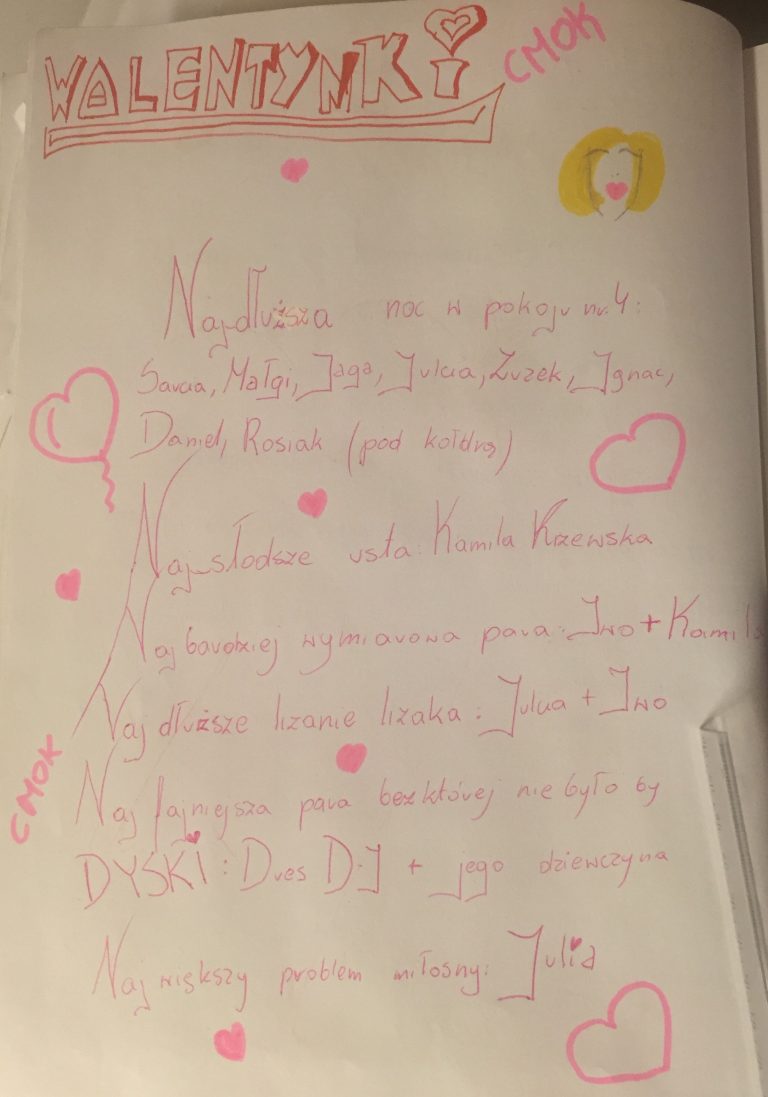 WALENTYNKI
CMOK
Najdłuższa noc w pokoju nr. 4:
Sarcia, Małgi, Jaga, Julcia, Zuzek, Ignac,
Daniel, Rosiak (pod kołdrą)
Najsłodsze usta: Kamila Krzewska
Najbardziej wymiarowa para: Iwo + Kamila
Najdłuższe lizanie lizaka: Julcia + Iwo
CMOK
Najfajniejsza para bez której nie było by
DYSKI: Dres DJ + jego dziewczyna
Największy problem miłosny: Julia